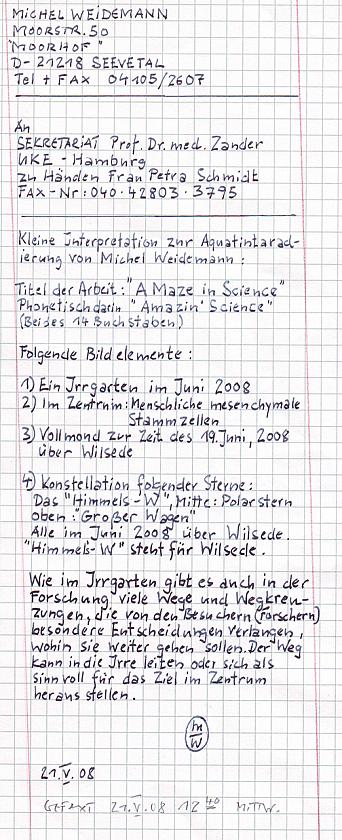 MICHEL WEIDEMANN
MOORSTR. 50
"MOORHOF"
D- 21218 SEEVETAL
Tel + FAX 04105/2607
An
SEKRETARIAT Prof. Dr. med. Zander
UKE - Hamburg
zu Händen Frau Petra Schmidt
FAX-Nr: 040·42803·3795
Kleine Interpretation zur Aquatintarad-
ierung von Michel Weidemann:
Titel der Arbeit: "A Maze in Science"
Phonetisch darin "Amazin' Science"
(Beides 14 Buchstaben)
Folgende Bildelemente:
1) Ein Irrgarten im Juni 2008
2) Im Zentrum: Menschliche mesenchymale
Stammzellen
3) Vollmond zur Zeit des 19. Juni, 2008
über Wilsede
4) Konstellation folgender Sterne:
Das "Himmels-W", Mitte: Polarstern
oben: "Großer Wagen"
Alle im Juni 2008 über Wilsede.
"Himmels-W" steht für Wilsede.
Wie im Irrgarten gibt es auch in der
Forschung viele Wege und Wegkreu-
zungen, die von den Besuchern (Forschern)
besondere Entscheidungen verlangen,
wohin sie weiter gehen sollen. Der Weg
kann in die Irre leiten oder sich als
sinnvoll für das Ziel im Zentrum
herausstellen.
M/W
21.V.08
GEFAXT 21.V.08 12 40 MITTW.